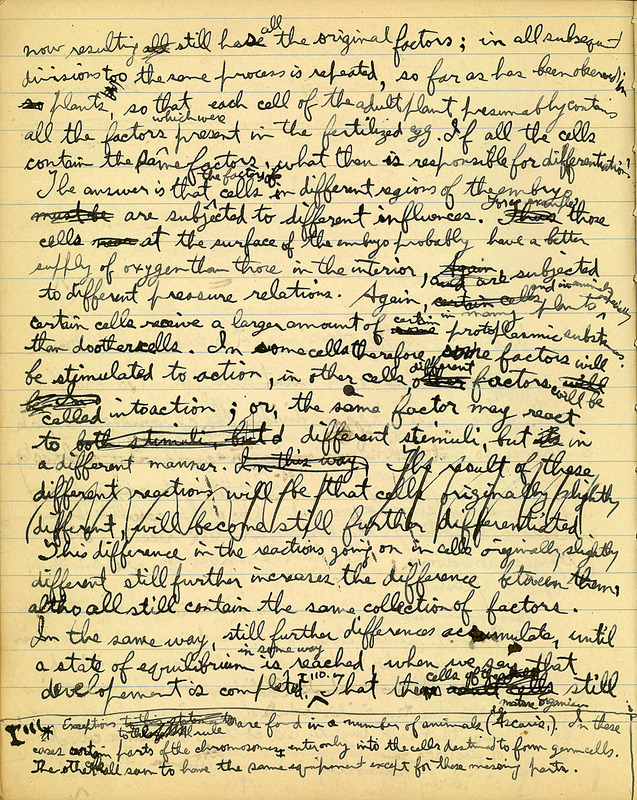 all
now resulting all still have the original factors; in all subsequent
divisions too the same process is repeated, so far as has been observed in
so plants, so that each cell of the adult plant presumably contains
which were
all the factors present in the fertilized egg. If all the cells
contain the same factors, what then is responsible for differentiation?
the factors of
The answer is that cells in different regions of the embryo
For example
must be are subjected to different influences. Thus those
cells near at the surface of the embryo probably have a better
supply of oxygen than those in the interior, Again and are subjected
and in animals
to different pressure relations. Again, certain cells plants
certain in many
certain cells receive a larger amount of protoplasmic substs.
than do other cells. In some cells therefore some factors will
different
be stimulated to action, in other cells, other factors will be
called into action; or, the same factor may react
to both stimuli, but different stimuli, but is in
a different manner. In this way The result of these
different reactions will be that cells originally slightly
different, will become still further differentiated
This difference in the reactions going on in cells originally slightly
different still further increases the difference between them,
altho all still contain the same collection of factors.
In the same way, still further differences accumulate, until
in some way
a state of equilibrium is reached, when we say that
cells of the
developement is completed. I"". 7 That the adult cells still
mature organism
I""* Exceptions to this rule are found in a number of animals (Ascaris,). In these
cases certain parts of the chromosomes enter only into the cells destined to form germ cells.
The other all seem to have the same equipment except for these missing parts.